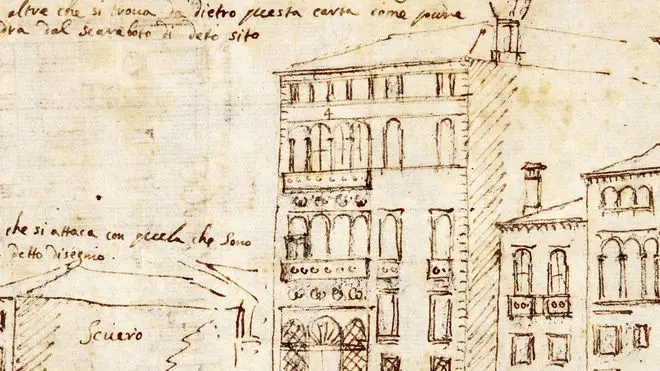 altre che si trova da dietro questa carta come pure
dal scaraboto di deto sito
4
che si attaca con quela che sono
detto disegno.
Scuero